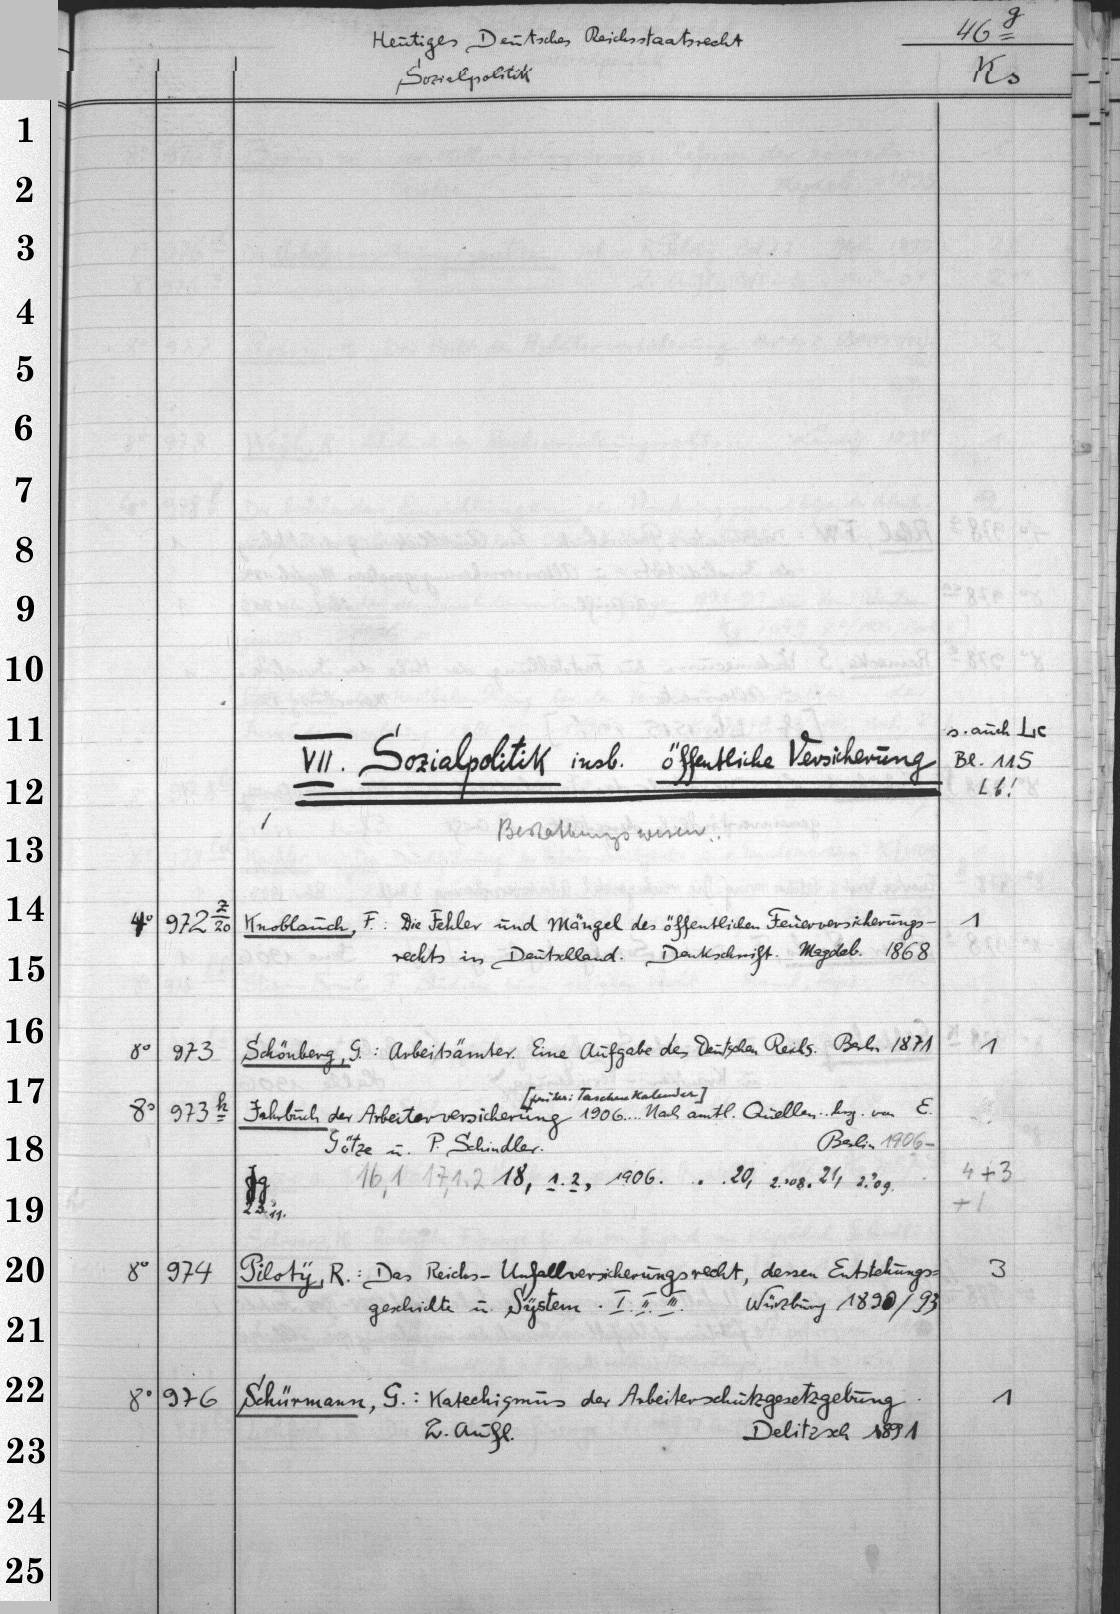 Heutiges Deutsches Reichsstaatsrecht 46 g
Sozialpolitik Ks
1
2
3
4
5
6
7
8
9
10
11 s. auch Lc
VII. Sozialpolitik insb. öffentliche Versicherung Bl. 115
12 Lb!
13
14
4° 972 z/20 Knoblauch, F.: Die Fehler und Mängel des öffentlichen Feuerversicherungs- 1
15 rechts in Deutschland. Denkschrift. Magdeb. 1868
16
8° 973 Schönberg, G.: Arbeitsämter. Eine Aufgabe des Deutschen Reichs. Berlin 1871 1
17 [früher: Taschenkalender]
8° 973 h Jahrbuch der Arbeiterversicherung 1906... Nach amtl. Quellen.. hrg. von E.
18 Götze u. P. Schindler. Berlin 1906-
Jg 16,1 17,1.2 18, 1.2, 1906. . . 20, 2.'08. 21, 2.'09. 4+3
19 23.'11. +1
20 8° 974 Piloty, R.: Das Reichs-Unfallversicherungsrecht, dessen Entstehungs= 3
geschichte u. System. I. II. III. Würzburg 1890/93
21
22 8° 976 Schürmann, G.: Katechismus der Arbeiterschutzgesetzgebung 1
2. Aufl. Delitzsch 1891
23
24
25